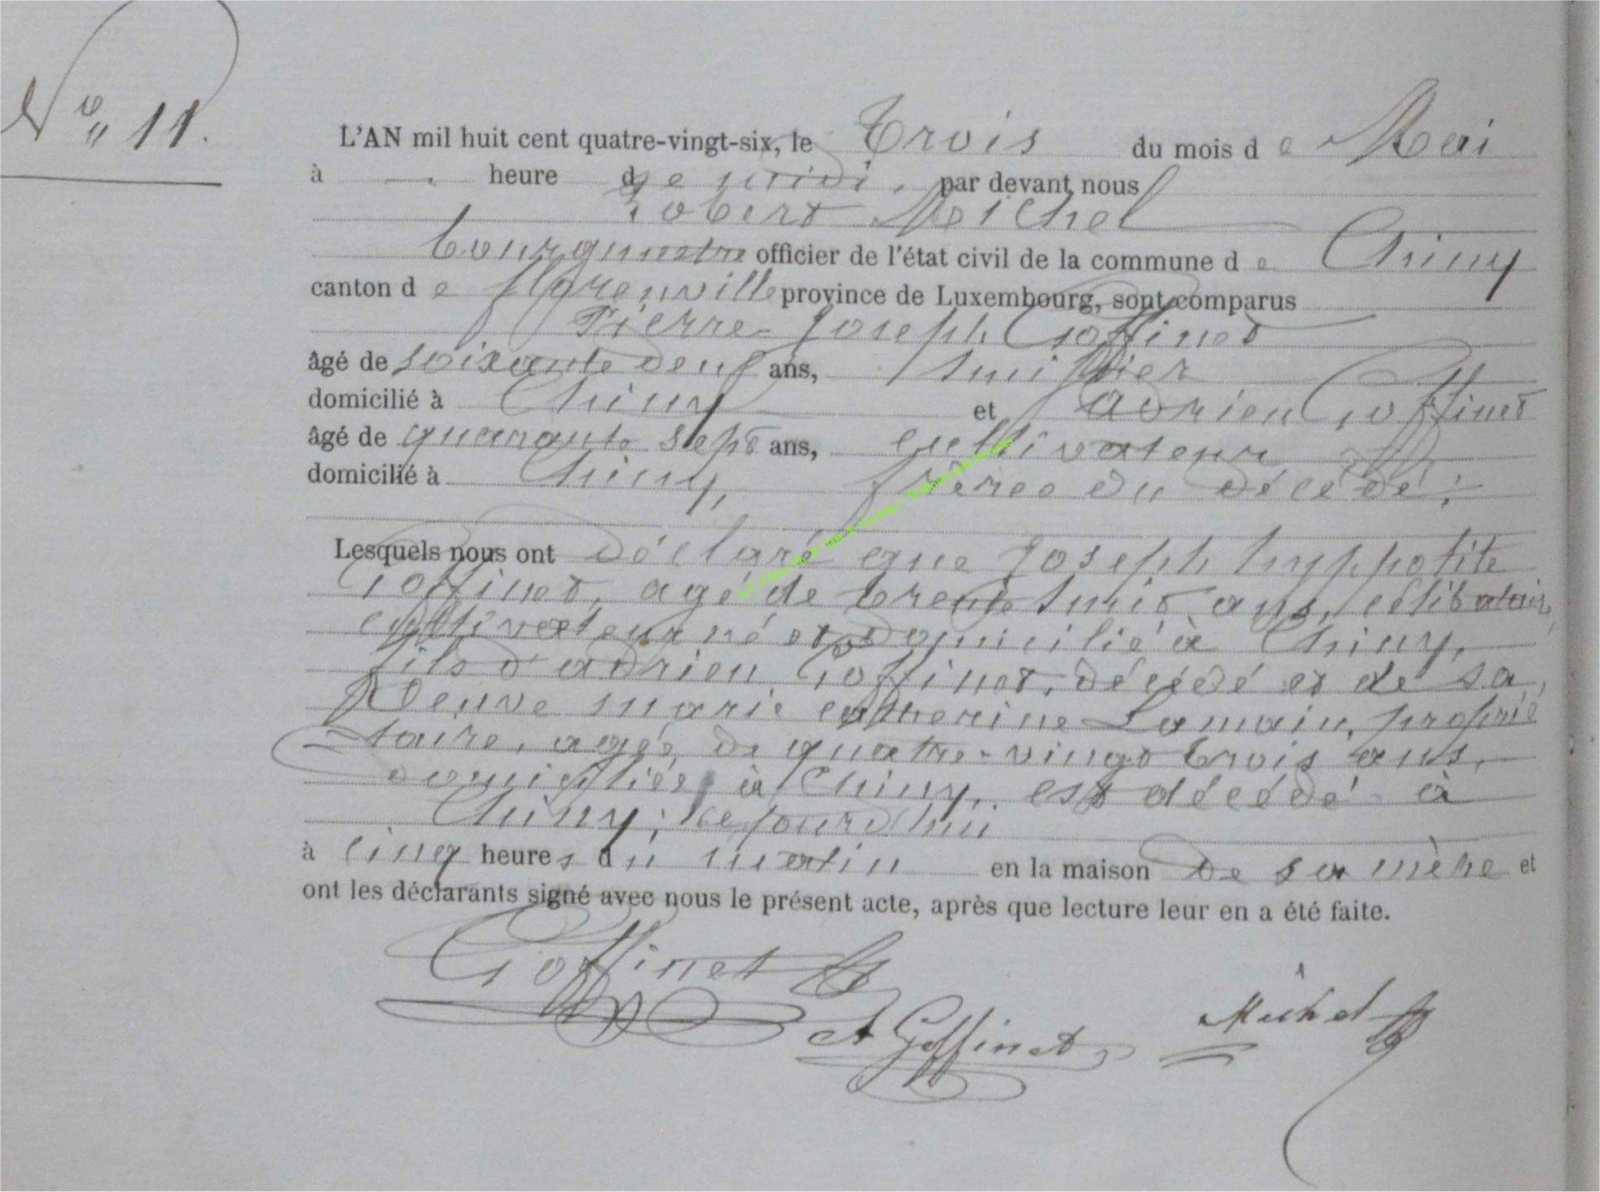 N° 11.
L'AN mil huit cent quatre-vingt-six, le Trois du mois de Mai
à — heure de midi, par devant nous
Robert Michel
bourgmestre officier de l'état civil de la commune de Chiny
canton de florenville province de Luxembourg, sont comparus
Pierre-Joseph Goffinet
âgé de soixante deux ans, huissier
domicilié à Chiny et adrien Goffinet
âgé de quarante sept ans, cultivateur
domicilié à Chiny, frères du décédé;
Lesquels nous ont déclaré que Joseph hyppolite
Goffinet, agé de trente huit ans, célibataire,
cultivateur né et domicilié à Chiny,
fils d'adrien Goffinet, décédé et de sa
veuve marie catherine Lamain, proprié
taire, agée de quatre-vingt trois ans,
domiciliée à Chiny, est décédé à
Chiny, cejourd'hui
à cinq heures du matin en la maison de sa mère et
ont les déclarants signé avec nous le présent acte, après que lecture leur en a été faite.
Goffinet
A Goffinet
Michel